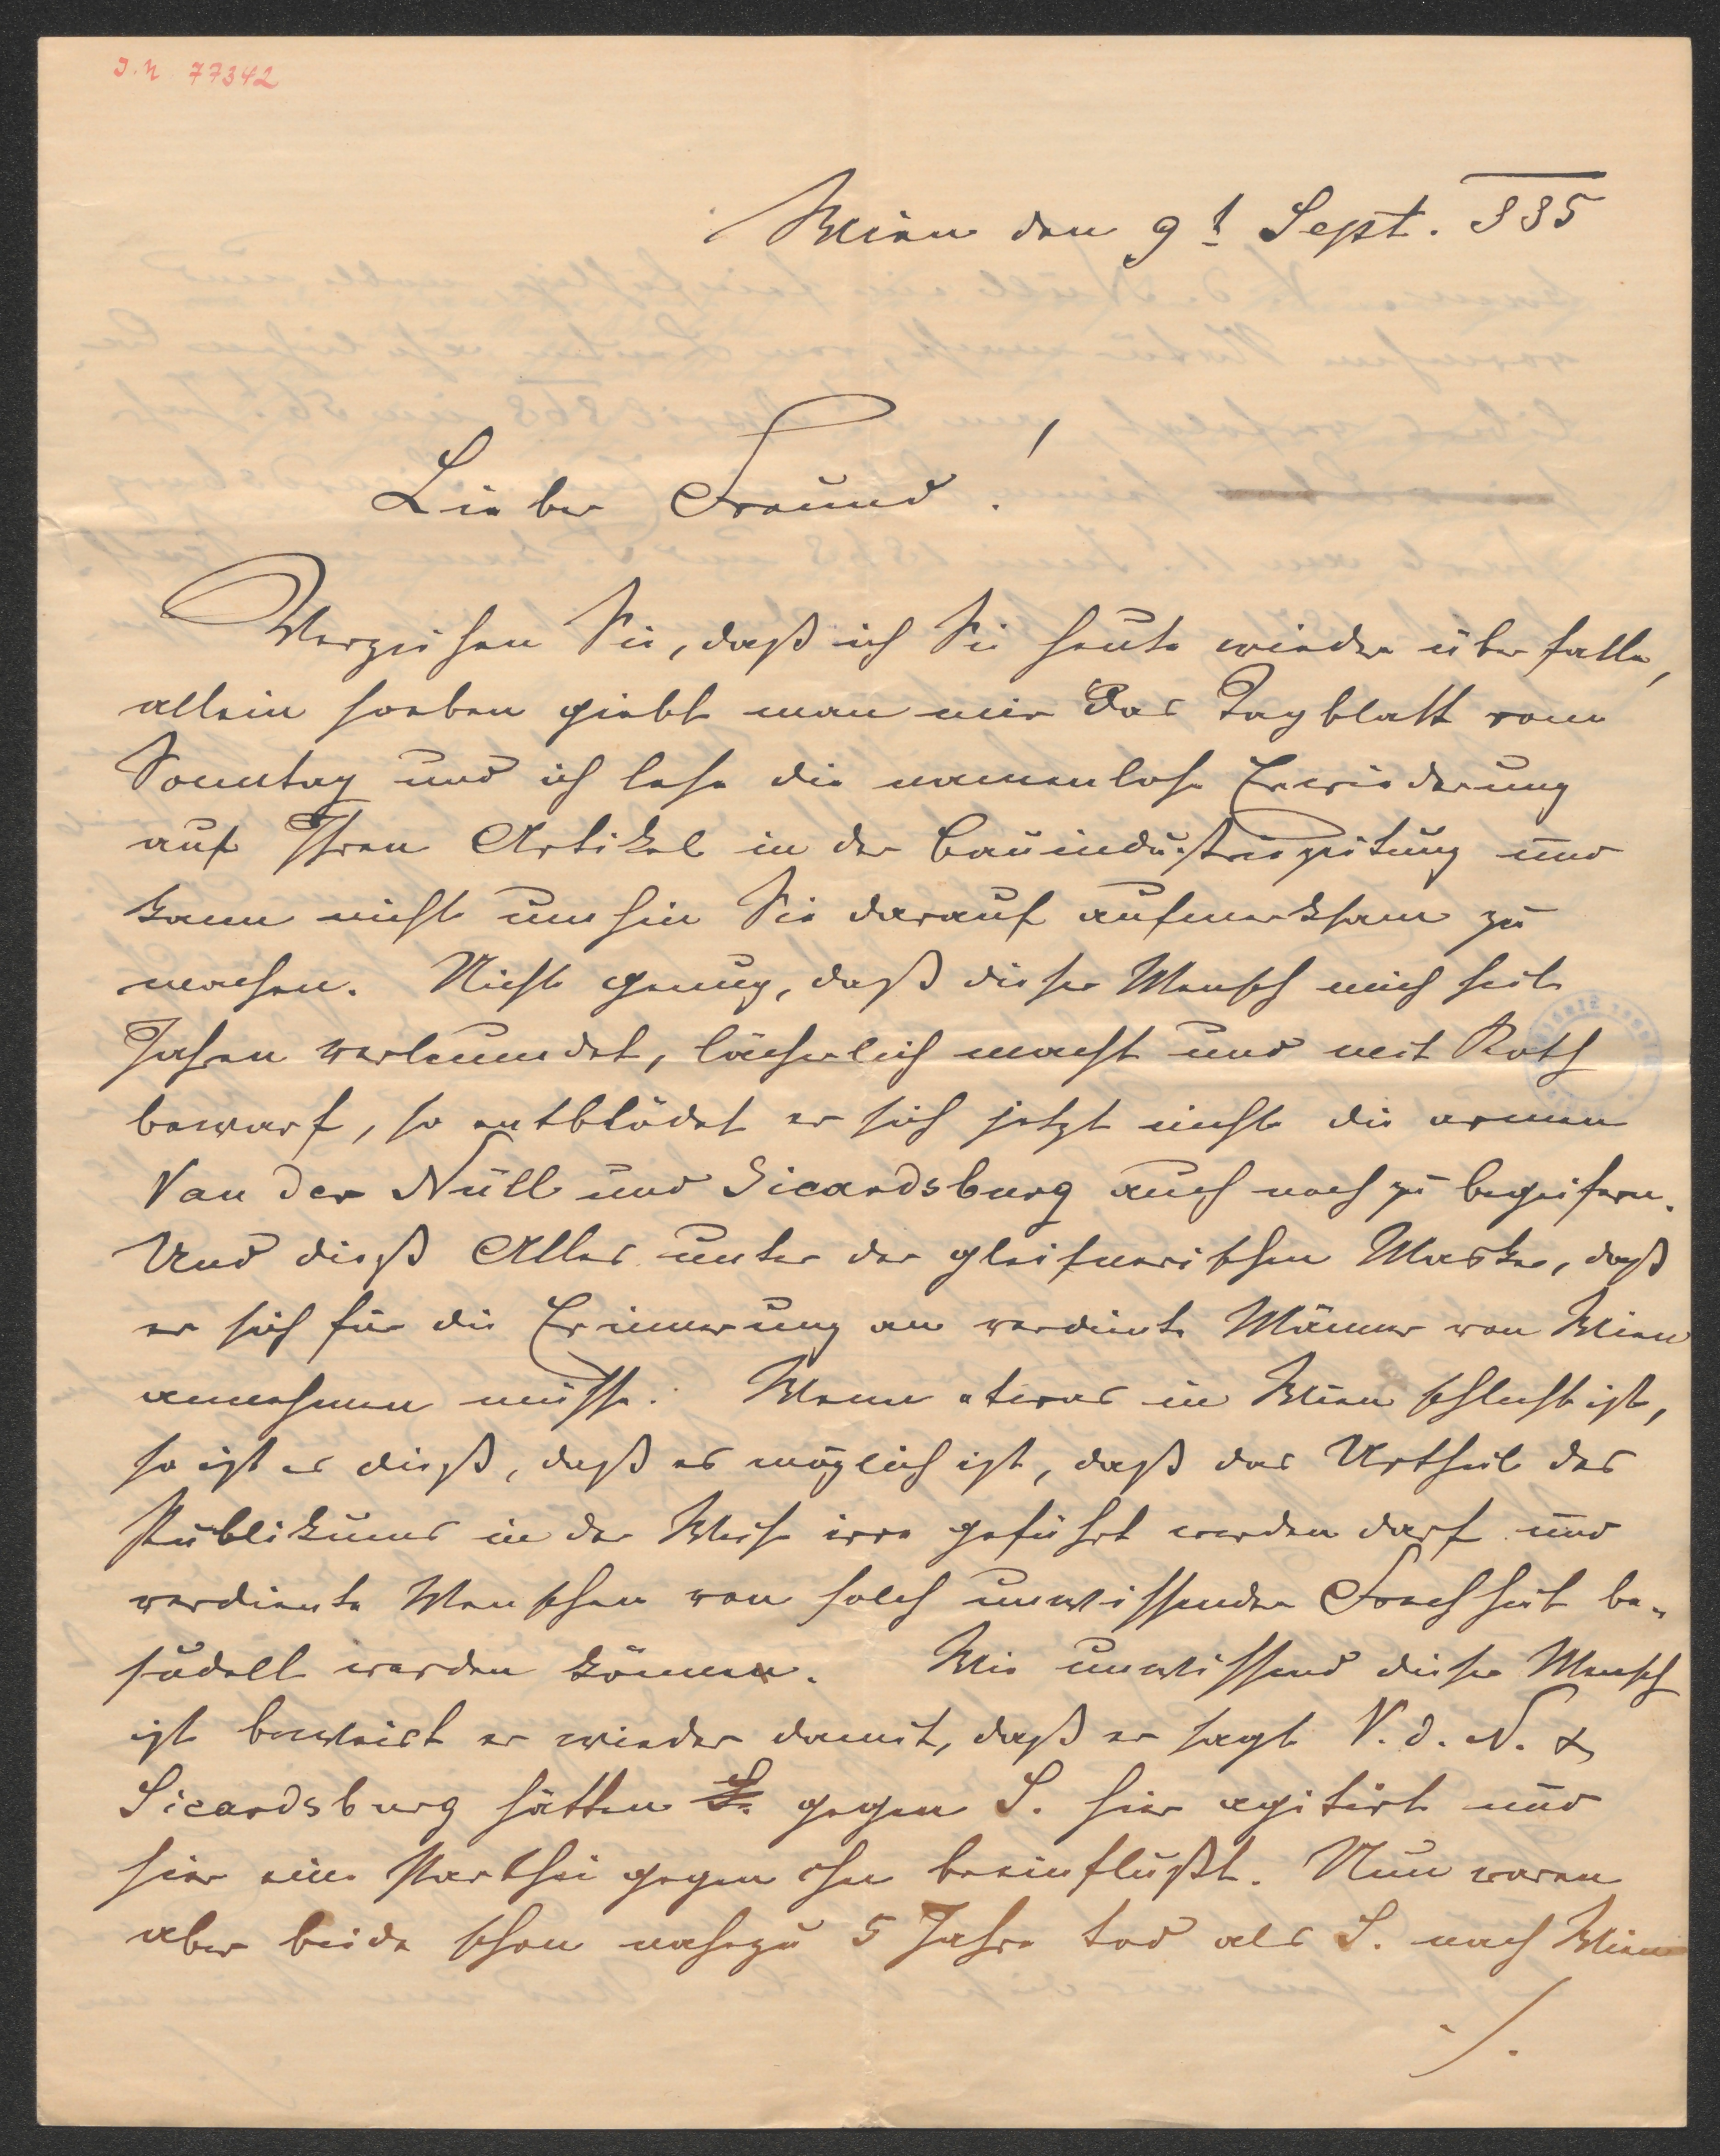 I.N. 77342
Wien den 9t Sept. 885
Lieber Freund!
Verzeihen Sie, daß ich Sie heute wieder überfalle,
allein soeben giebt man mir das Tagblatt vom
Sonntag und ich lese die namenlose Erwiederung
auf Ihren Artikel in der Bauindustriezeitung und
kann nicht umhin Sie darauf aufmerksam zu
machen. Nicht genug, daß dieser Mensch mich seit
Jahren verleumdet, lächerlich macht und mit Koth
bewarf, so entblödet er sich jetzt nicht die armen
Van der Nüll und Sicardsburg auch noch zu begeifern.
Und dieß Alles unter der gleißnerischen Maske, daß
er sich für die Erinnerung an verdiente Männer von Wien
annehmen müsse. Wenn etwas in Wien schlecht ist,
so ist es dieß, daß es möglich ist, daß das Urtheil des
Publikums in der Weise irre geführt werden darf und
verdiente Menschen von solch unwissender Frechheit be-
sudelt werden können. Wie unwissend dieser Mensch
ist beweist er wieder damit, daß er sagt V. d. N. &
Sicardsburg hätten S. gegen S. hier agitirt und
hier eine Parthei gegen ihn beeinflußt. Nun waren
aber beide schon nahezu 5 Jahre tod als S. nach Wien
./.